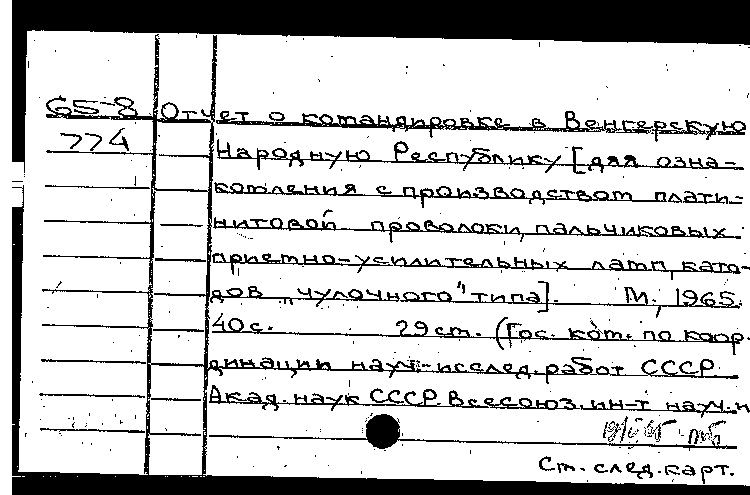 65-8 Отчет о командировке в Венгерскую
774 Народную Республику [для озна-
комления с производством плати-
нитовой проволоки, пальчиковых
приемно-усилительных ламп, като-
дов „чулочного" типа]. М., 1965.
40 с. 29 см. (Гос. ком. по коор-
динации науч.-исслед. работ СССР.
Акад. наук СССР. Всесоюз. ин-т науч. и
См. след. карт.